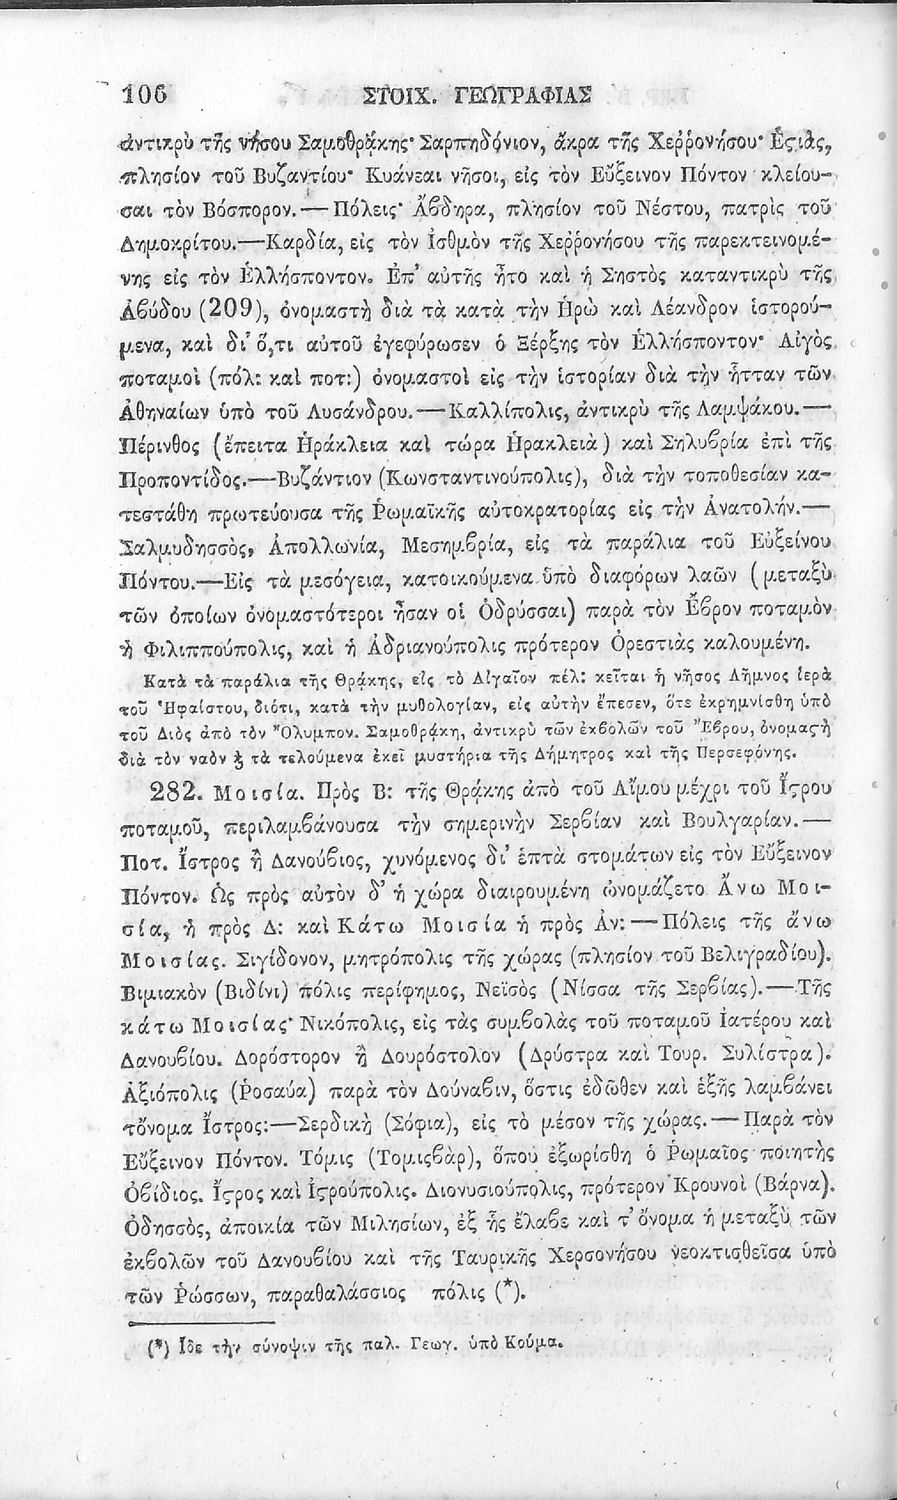 106 ΣΤΟΙΧ. ΓΕΩΓΡΑΦΙΑΣ
ἀντικρὺ τῆς νήσου Σαμοθρᾴκης· Σαρπηδόνιον, ἄκρα τῆς Χεῤῥονήσου· Ἑϛιὰς,
πλησίον τοῦ Βυζαντίου· Κυάνεαι νῆσοι, εἰς τὸν Εὔξεινον Πόντον κλείου-
σαι τὸν Βόσπορον.—Πόλεις· Ἄβδηρα, πλησίον τοῦ Νέστου, πατρὶς τοῦ
Δημοκρίτου.—Καρδία, εἰς τὸν Ἰσθμὸν τῆς Χεῤῥονήσου τῆς παρεκτεινομέ-
νης εἰς τὸν Ἑλλήσποντον. Ἐπ' αὐτῆς ἦτο καὶ ἡ Σηστὸς καταντικρὺ τῆς
Ἀβύδου (209), ὀνομαστὴ διὰ τὰ κατὰ τὴν Ἡρὼ καὶ Λέανδρον ἱστορού-
μενα, καὶ δι' ὅ,τι αὐτοῦ ἐγεφύρωσεν ὁ Ξέρξης τὸν Ἑλλήσποντον· Αἰγὸς
ποταμοὶ (πόλ: καὶ ποτ:) ὀνομαστοὶ εἰς τὴν ἱστορίαν διὰ τὴν ἧτταν τῶν
Ἀθηναίων ὑπὸ τοῦ Λυσάνδρου.—Καλλίπολις, ἀντικρὺ τῆς Λαμψάκου.—
Πέρινθος (ἔπειτα Ἡράκλεια καὶ τώρα Ἡρακλειὰ) καὶ Σηλυβρία ἐπὶ τῆς
Προποντίδος.—Βυζάντιον (Κωνσταντινούπολις), διὰ τὴν τοποθεσίαν κα-
τεστάθη πρωτεύουσα τῆς Ῥωμαϊκῆς αὐτοκρατορίας εἰς τὴν Ἀνατολήν.—
Σαλμυδησσὸς, Ἀπολλωνία, Μεσημβρία, εἰς τὰ παράλια τοῦ Εὐξείνου
Πόντου.—Εἰς τὰ μεσόγεια, κατοικούμενα ὑπὸ διαφόρων λαῶν (μεταξὺ
τῶν ὁποίων ὀνομαστότεροι ἦσαν οἱ Ὀδρύσσαι) παρὰ τὸν Ἕβρον ποταμὸν
ἡ Φιλιππούπολις, καὶ ἡ Ἀδριανούπολις πρότερον Ὀρεστιὰς καλουμένη.
Κατὰ τὰ παράλια τῆς Θρᾴκης, εἰς τὸ Αἰγαῖον πέλ: κεῖται ἡ νῆσος Λῆμνος ἱερὰ
τοῦ Ἡφαίστου, διότι, κατὰ τὴν μυθολογίαν, εἰς αὐτὴν ἔπεσεν, ὅτε ἐκρημνίσθη ὑπὸ
τοῦ Διὸς ἀπὸ τὸν Ὄλυμπον. Σαμοθρᾴκη, ἀντικρὺ τῶν ἐκβολῶν τοῦ Ἕβρου, ὀνομαϛὴ
διὰ τὸν ναὸν ϗ τὰ τελούμενα ἐκεῖ μυστήρια τῆς Δήμητρος καὶ τῆς Περσεφόνης.
282. Μοισία. Πρὸς Β: τῆς Θρᾴκης ἀπὸ τοῦ Αἵμου μέχρι τοῦ Ἴϛρου
ποταμοῦ, περιλαμβάνουσα τὴν σημερινὴν Σερβίαν καὶ Βουλγαρίαν.—
Ποτ. Ἴστρος ἢ Δανούβιος, χυνόμενος δι' ἑπτὰ στομάτων εἰς τὸν Εὔξεινον
Πόντον. Ὡς πρὸς αὐτὸν δ' ἡ χώρα διαιρουμένη ὠνομάζετο Ἄνω Μοι-
σία, ἡ πρὸς Δ: καὶ Κάτω Μοισία ἡ πρὸς Ἀν:—Πόλεις τῆς ἄνω
Μοισίας. Σιγίδονον, μητρόπολις τῆς χώρας (πλησίον τοῦ Βελιγραδίου).
Βιμιακὸν (Βιδίνι) πόλις περίφημος, Νεϊσὸς (Νίσσα τῆς Σερβίας).—Τῆς
κάτω Μοισίας· Νικόπολις, εἰς τὰς συμβολὰς τοῦ ποταμοῦ Ἰατέρου καὶ
Δανουβίου. Δορόστορον ἢ Δουρόστολον (Δρύστρα καὶ Τουρ. Συλίστρα).
Ἀξιόπολις (Ῥοσαύα) παρὰ τὸν Δούναβιν, ὅστις ἐδῶθεν καὶ ἑξῆς λαμβάνει
τὄνομα Ἴστρος:—Σερδικὴ (Σόφια), εἰς τὸ μέσον τῆς χώρας.—Παρὰ τὸν
Εὔξεινον Πόντον. Τόμις (Τομισβὰρ), ὅπου ἐξωρίσθη ὁ Ῥωμαῖος ποιητὴς
Ὀβίδιος. Ἴϛρος καὶ Ἰϛρούπολις. Διονυσιούπολις, πρότερον Κρουνοὶ (Βάρνα).
Ὀδησσὸς, ἀποικία τῶν Μιλησίων, ἐξ ἧς ἔλαβε καὶ τ' ὄνομα ἡ μεταξὺ τῶν
ἐκβολῶν τοῦ Δανουβίου καὶ τῆς Ταυρικῆς Χερσονήσου νεοκτισθεῖσα ὑπὸ
τῶν Ῥώσσων, παραθαλάσσιος πόλις (*).
(*) Ἰδε τὴν σύνοψιν τῆς παλ. Γεωγ. ὑπὸ Κούμα.